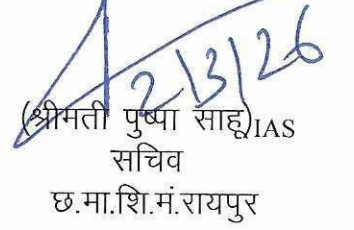 2/3/26
(श्रीमती पुष्पा साहू)IAS
सचिव
छ.मा.शि.मं.रायपुर